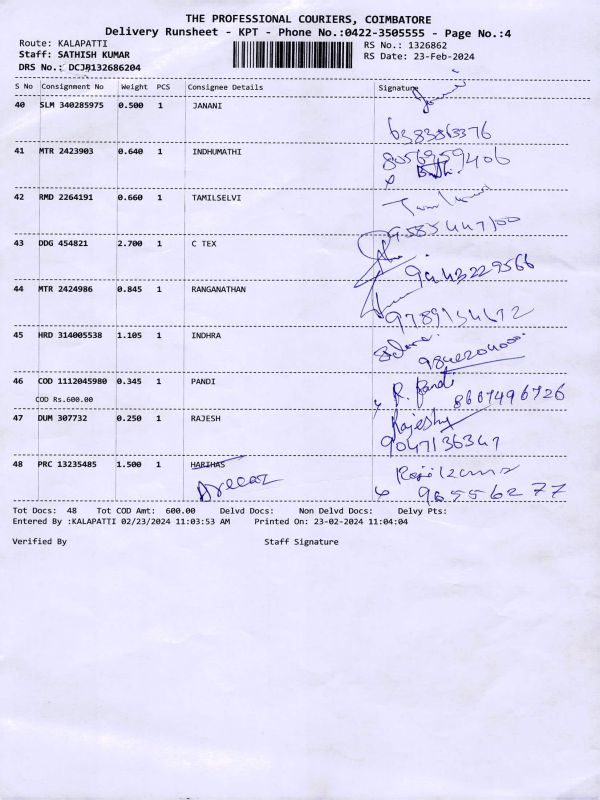 THE PROFESSIONAL COURIERS, COIMBATORE
Delivery Runsheet - KPT - Phone No.:0422-3505555 - Page No.:4
Route: KALAPATTI RS No.: 1326862
Staff: SATHISH KUMAR RS Date: 23-Feb-2024
DRS No.: DCJB132686204
S No Consignment No Weight PCS Consignee Details Signature
40 SLM 340285975 0.500 1 JANANI
6383863376
41 MTR 2423903 0.640 1 INDHUMATHI 8056959406
42 RMD 2264191 0.660 1 TAMILSELVI
9585447100
43 DDG 454821 2.700 1 C TEX
9443229566
44 MTR 2424986 0.845 1 RANGANATHAN
9789154672
45 HRD 314005538 1.105 1 INDHRA
46 COD 1112045980 0.345 1 PANDI R. Pandi 8667496726
COD Rs.600.00
47 DUM 307732 0.250 1 RAJESH Rajesh
9047136347
48 PRC 13235485 1.500 1 HARIHAS
965556277
Tot Docs: 48 Tot COD Amt: 600.00 Delvd Docs: Non Delvd Docs: Delvy Pts:
Entered By :KALAPATTI 02/23/2024 11:03:53 AM Printed On: 23-02-2024 11:04:04
Verified By Staff Signature